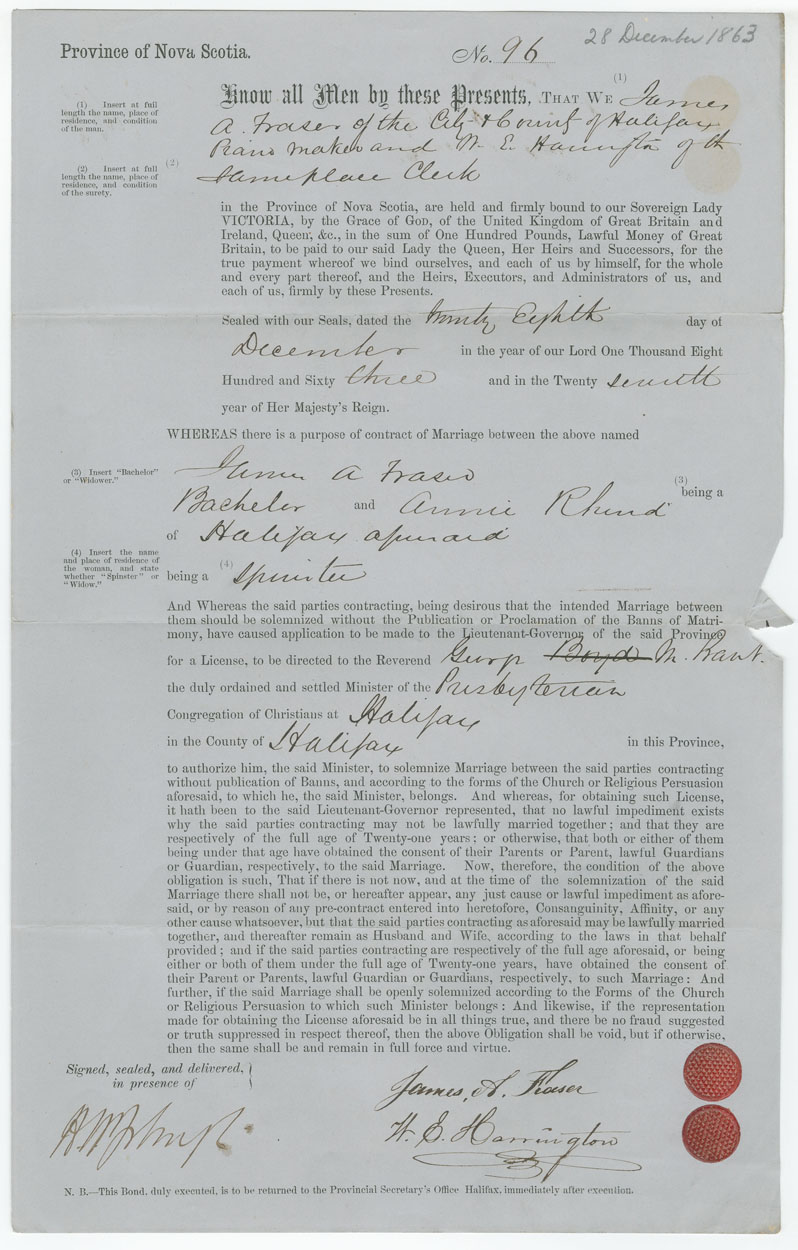 28 December 1863
Province of Nova Scotia.
No. 96
Know all Men by these Presents, THAT WE (1) James
A. Fraser of the City & County of Halifax
Piano maker and W. E. Harrington of th
(2) same place Clerk
(1) Insert at full
length the name, place of
residence, and condition
of the man.
(2) Insert at full
length the name, place of
residence, and condition
of the surety.
in the Province of Nova Scotia, are held and firmly bound to our Sovereign Lady
VICTORIA, by the Grace of GOD, of the United Kingdom of Great Britain and
Ireland, Queen, &c., in the sum of One Hundred Pounds, Lawful Money of Great
Britain, to be paid to our said Lady the Queen, Her Heirs and Successors, for the
true payment whereof we bind ourselves, and each of us by himself, for the whole
and every part thereof, and the Heirs, Executors, and Administrators of us, and
each of us, firmly by these Presents.
Sealed with our Seals, dated the Twenty Eighth day of
December in the year of our Lord One Thousand Eight
Hundred and Sixty three and in the Twenty seventh
year of Her Majesty's Reign.
WHEREAS there is a purpose of contract of Marriage between the above named
James A Fraser (3) being a
Bachelor and Annie Rhind
of Halifax aforesaid
being a (4) Spinster
(3) Insert "Bachelor"
or "Widower."
(4) Insert the name
and place of residence of
the woman, and state
whether "Spinster" or
"Widow."
And Whereas the said parties contracting, being desirous that the intended Marriage between
them should be solemnized without the Publication or Proclamation of the Banns of Matri-
mony, have caused application to be made to the Lieutenant-Governor of the said Province
for a License, to be directed to the Reverend George Boyd M. Grant.
the duly ordained and settled Minister of the Presbyterian
Congregation of Christians at Halifax
in the County of Halifax in this Province,
to authorize him, the said Minister, to solemnize Marriage between the said parties contracting
without publication of Banns, and according to the forms of the Church or Religious Persuasion
aforesaid, to which he, the said Minister, belongs. And whereas, for obtaining such License,
it hath been to the said Lieutenant-Governor represented, that no lawful impediment exists
why the said parties contracting may not be lawfully married together; and that they are
respectively of the full age of Twenty-one years; or otherwise, that both or either of them
being under that age have obtained the consent of their Parents or Parent, lawful Guardians
or Guardian, respectively, to the said Marriage. Now, therefore, the condition of the above
obligation is such, That if there is not now, and at the time of the solemnization of the said
Marriage there shall not be, or hereafter appear, any just cause or lawful impediment as afore-
said, or by reason of any pre-contract entered into heretofore, Consanguinity, Affinity, or any
other cause whatsoever, but that the said parties contracting as aforesaid may be lawfully married
together, and thereafter remain as Husband and Wife, according to the laws in that behalf
provided; and if the said parties contracting are respectively of the full age aforesaid, or being
either or both of them under the full age of Twenty-one years, have obtained the consent of
their Parent or Parents, lawful Guardian or Guardians, respectively, to such Marriage: And
further, if the said Marriage shall be openly solemnized according to the Forms of the Church
or Religious Persuasion to which such Minister belongs: And likewise, if the representation
made for obtaining the License aforesaid be in all things true, and there be no fraud suggested
or truth suppressed in respect thereof, then the above Obligation shall be void, but if otherwise,
then the same shall be and remain in full force and virtue.
Signed, sealed, and delivered,
in presence of
James, A. Fraser
W. E. Harrington
N. B.—This Bond, duly executed, is to be returned to the Provincial Secretary's Office Halifax, immediately after execution.